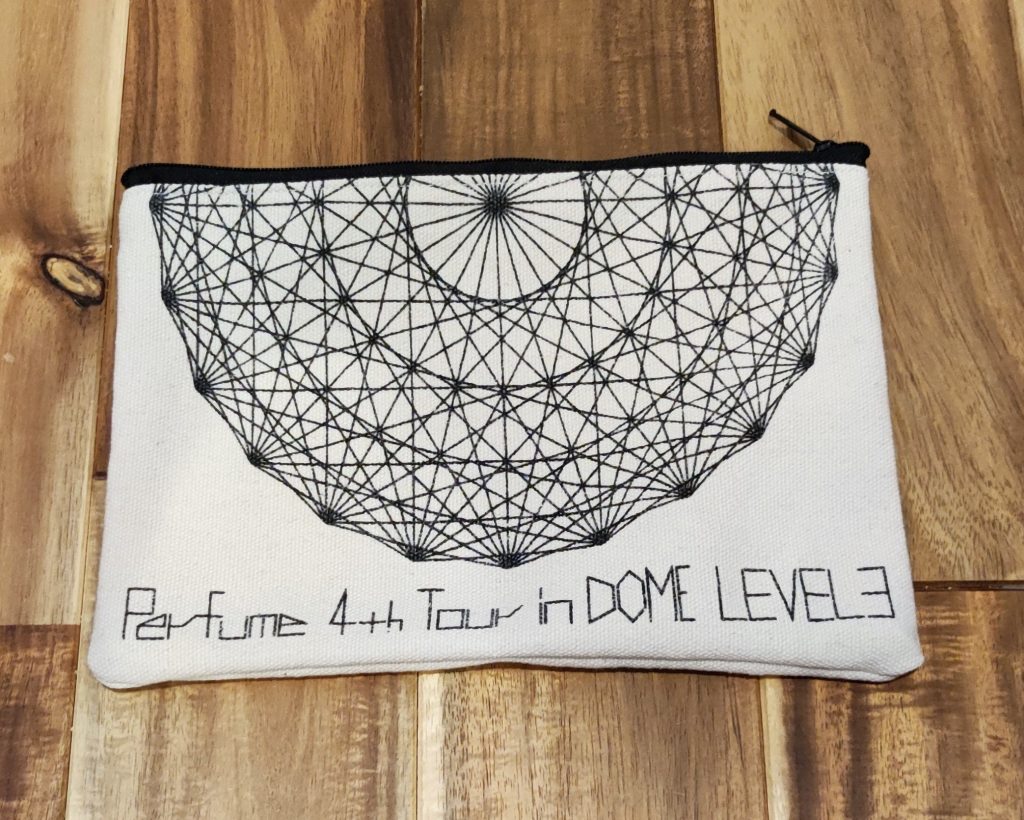 Perfume 4th Tour in DOME LEVEL3